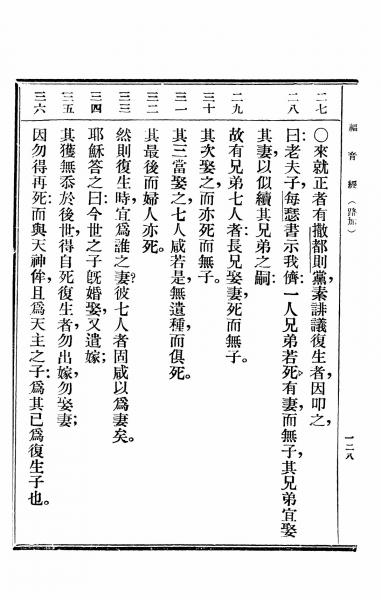 福音經(路加)
一二八
二七
○來就正者有撒都則黨素誹議復生者因叩之,
二八
曰:老夫子,每瑟書示我儕:一人兄弟若死,有妻,而無子,其兄弟宜娶
其妻以似續其兄弟之嗣:
二九
故有兄弟七人者:長兄娶妻死而無子。
三十
其次娶之,而亦死而無子。
三一
其三當娶之,七人咸若是,無遺種,而俱死。
三二
其最後而婦人亦死。
三三
然則復生時,宜爲誰之妻?彼七人者固咸以爲妻矣。
三四
耶穌答之曰:今世之子旣婚娶,又遣嫁;
三五
其獲無忝於後世,得自死復生者,勿出嫁,勿娶妻;
三六
因勿得再死:而與天神侔,且爲天主之子:爲其已爲復生子也。